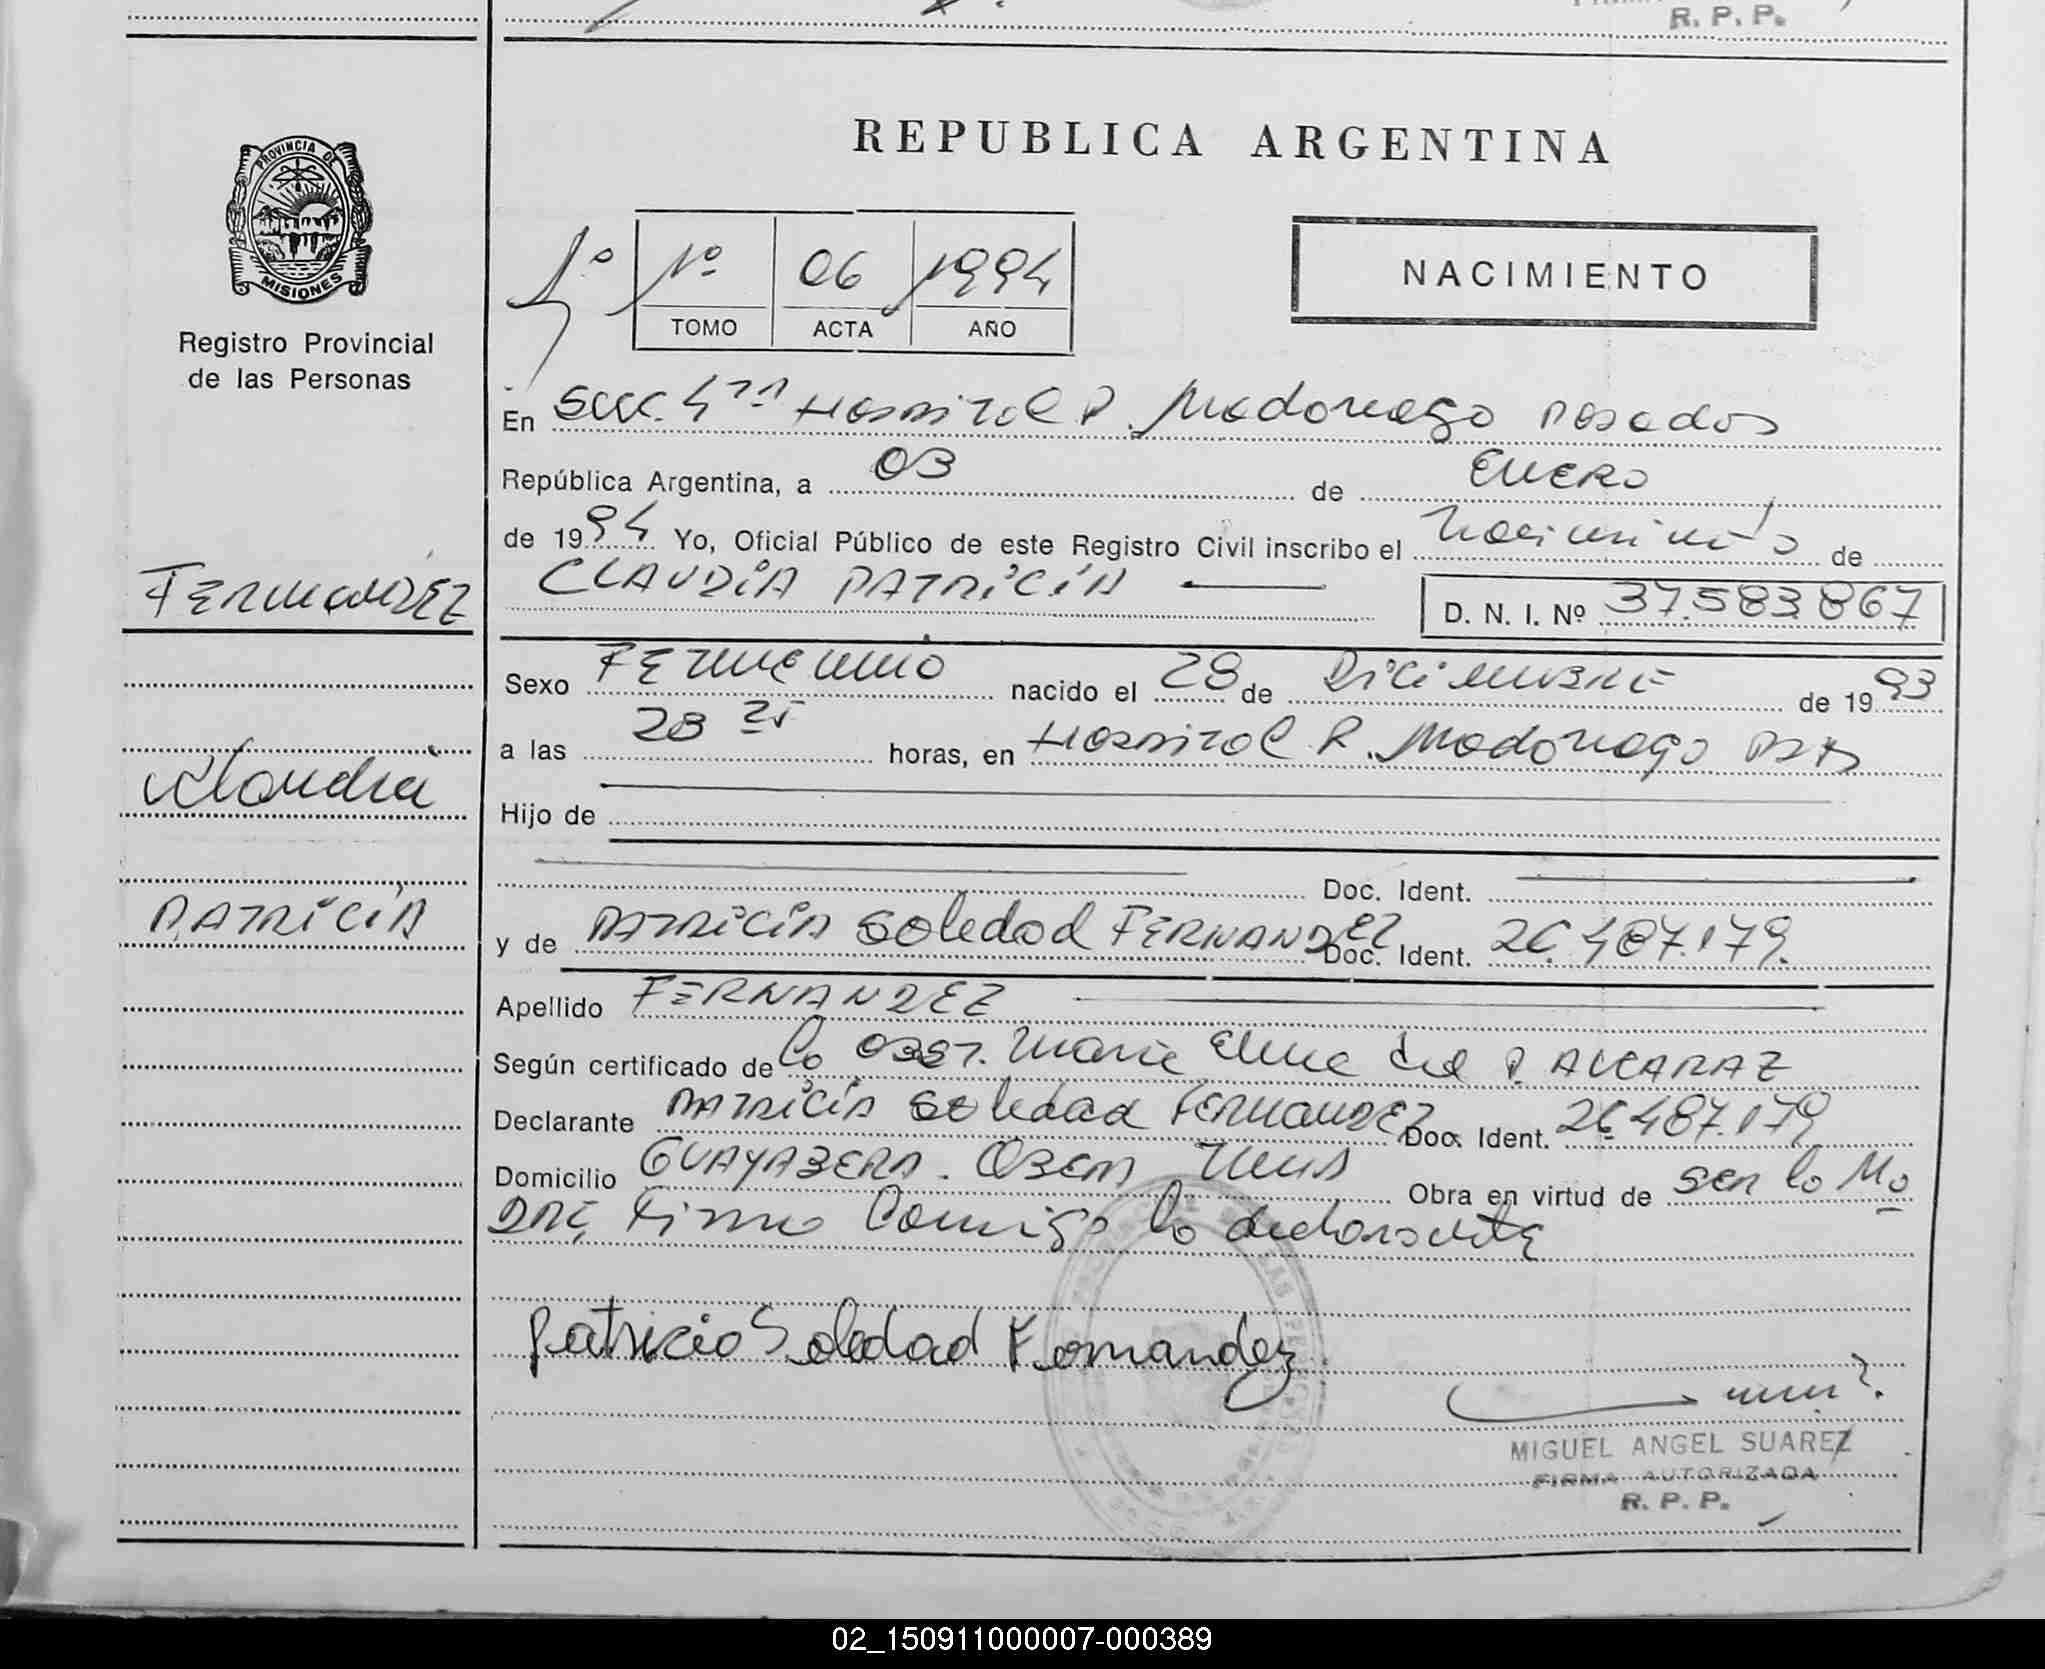 R. P. P.
PROVINCIA DE
MISIONES
Registro Provincial
de las Personas
FERNANDEZ
Claudia
PATRICIA
REPUBLICA ARGENTINA
1º Nº 06 1994
TOMO ACTA AÑO
NACIMIENTO
En Secc. 4ta Hospital R. Madariaga Posadas
República Argentina, a 03 de ENERO
de 1994 Yo, Oficial Público de este Registro Civil inscribo el Nacimiento de
CLAUDIA PATRICIA D. N. I. Nº 37.583.867
Sexo FEMENINO nacido el 28 de DICIEMBRE de 1993
a las horas, en Hospital R. Madariaga PSAS
Hijo de
Doc. Ident.
y de PATRICIA Soledad FERNANDEZ Doc. Ident. 26.487.179.
Apellido FERNANDEZ
Según certificado de la OBST. Maria Elena del P. ALCARAZ
Declarante PATRICIA Soledad FERNANDEZ Doc. Ident. 26.487.179
Domicilio GUAYABERA. OBERA Obra en virtud de SER la Ma
DRE, Firma Conmigo la declarante
Patricia Soledad Fernandez
MIGUEL ANGEL SUAREZ
FIRMA AUTORIZADA
R. P. P.
02_150911000007-000389